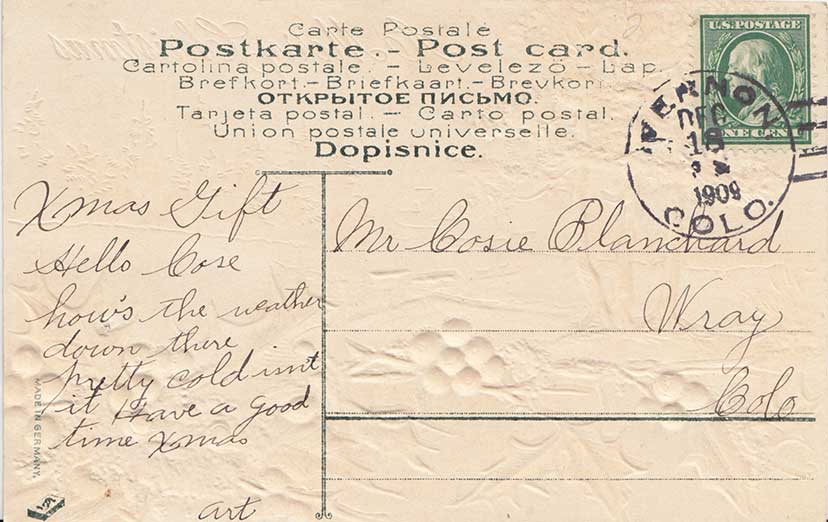 Carte Postale
Postkarte. - Post card.
Cartolina postale. - Levelező - Lap.
Brefkort. - Briefkaart. - Brevkort.
ОТКРЫТОЕ ПИСЬМО.
Tarjeta postal. - Carto postal.
Union postale universelle.
Dopisnice.
U.S. POSTAGE
ONE CENT
VERNON
DEC
18
1909
COLO.
Xmas Gift
Hello Cose
how's the weather
down there
pretty cold isnt
it Have a good
time Xmas
Art
Mr Cosie Blanchard
Wray
Colo
MADE IN GERMANY.